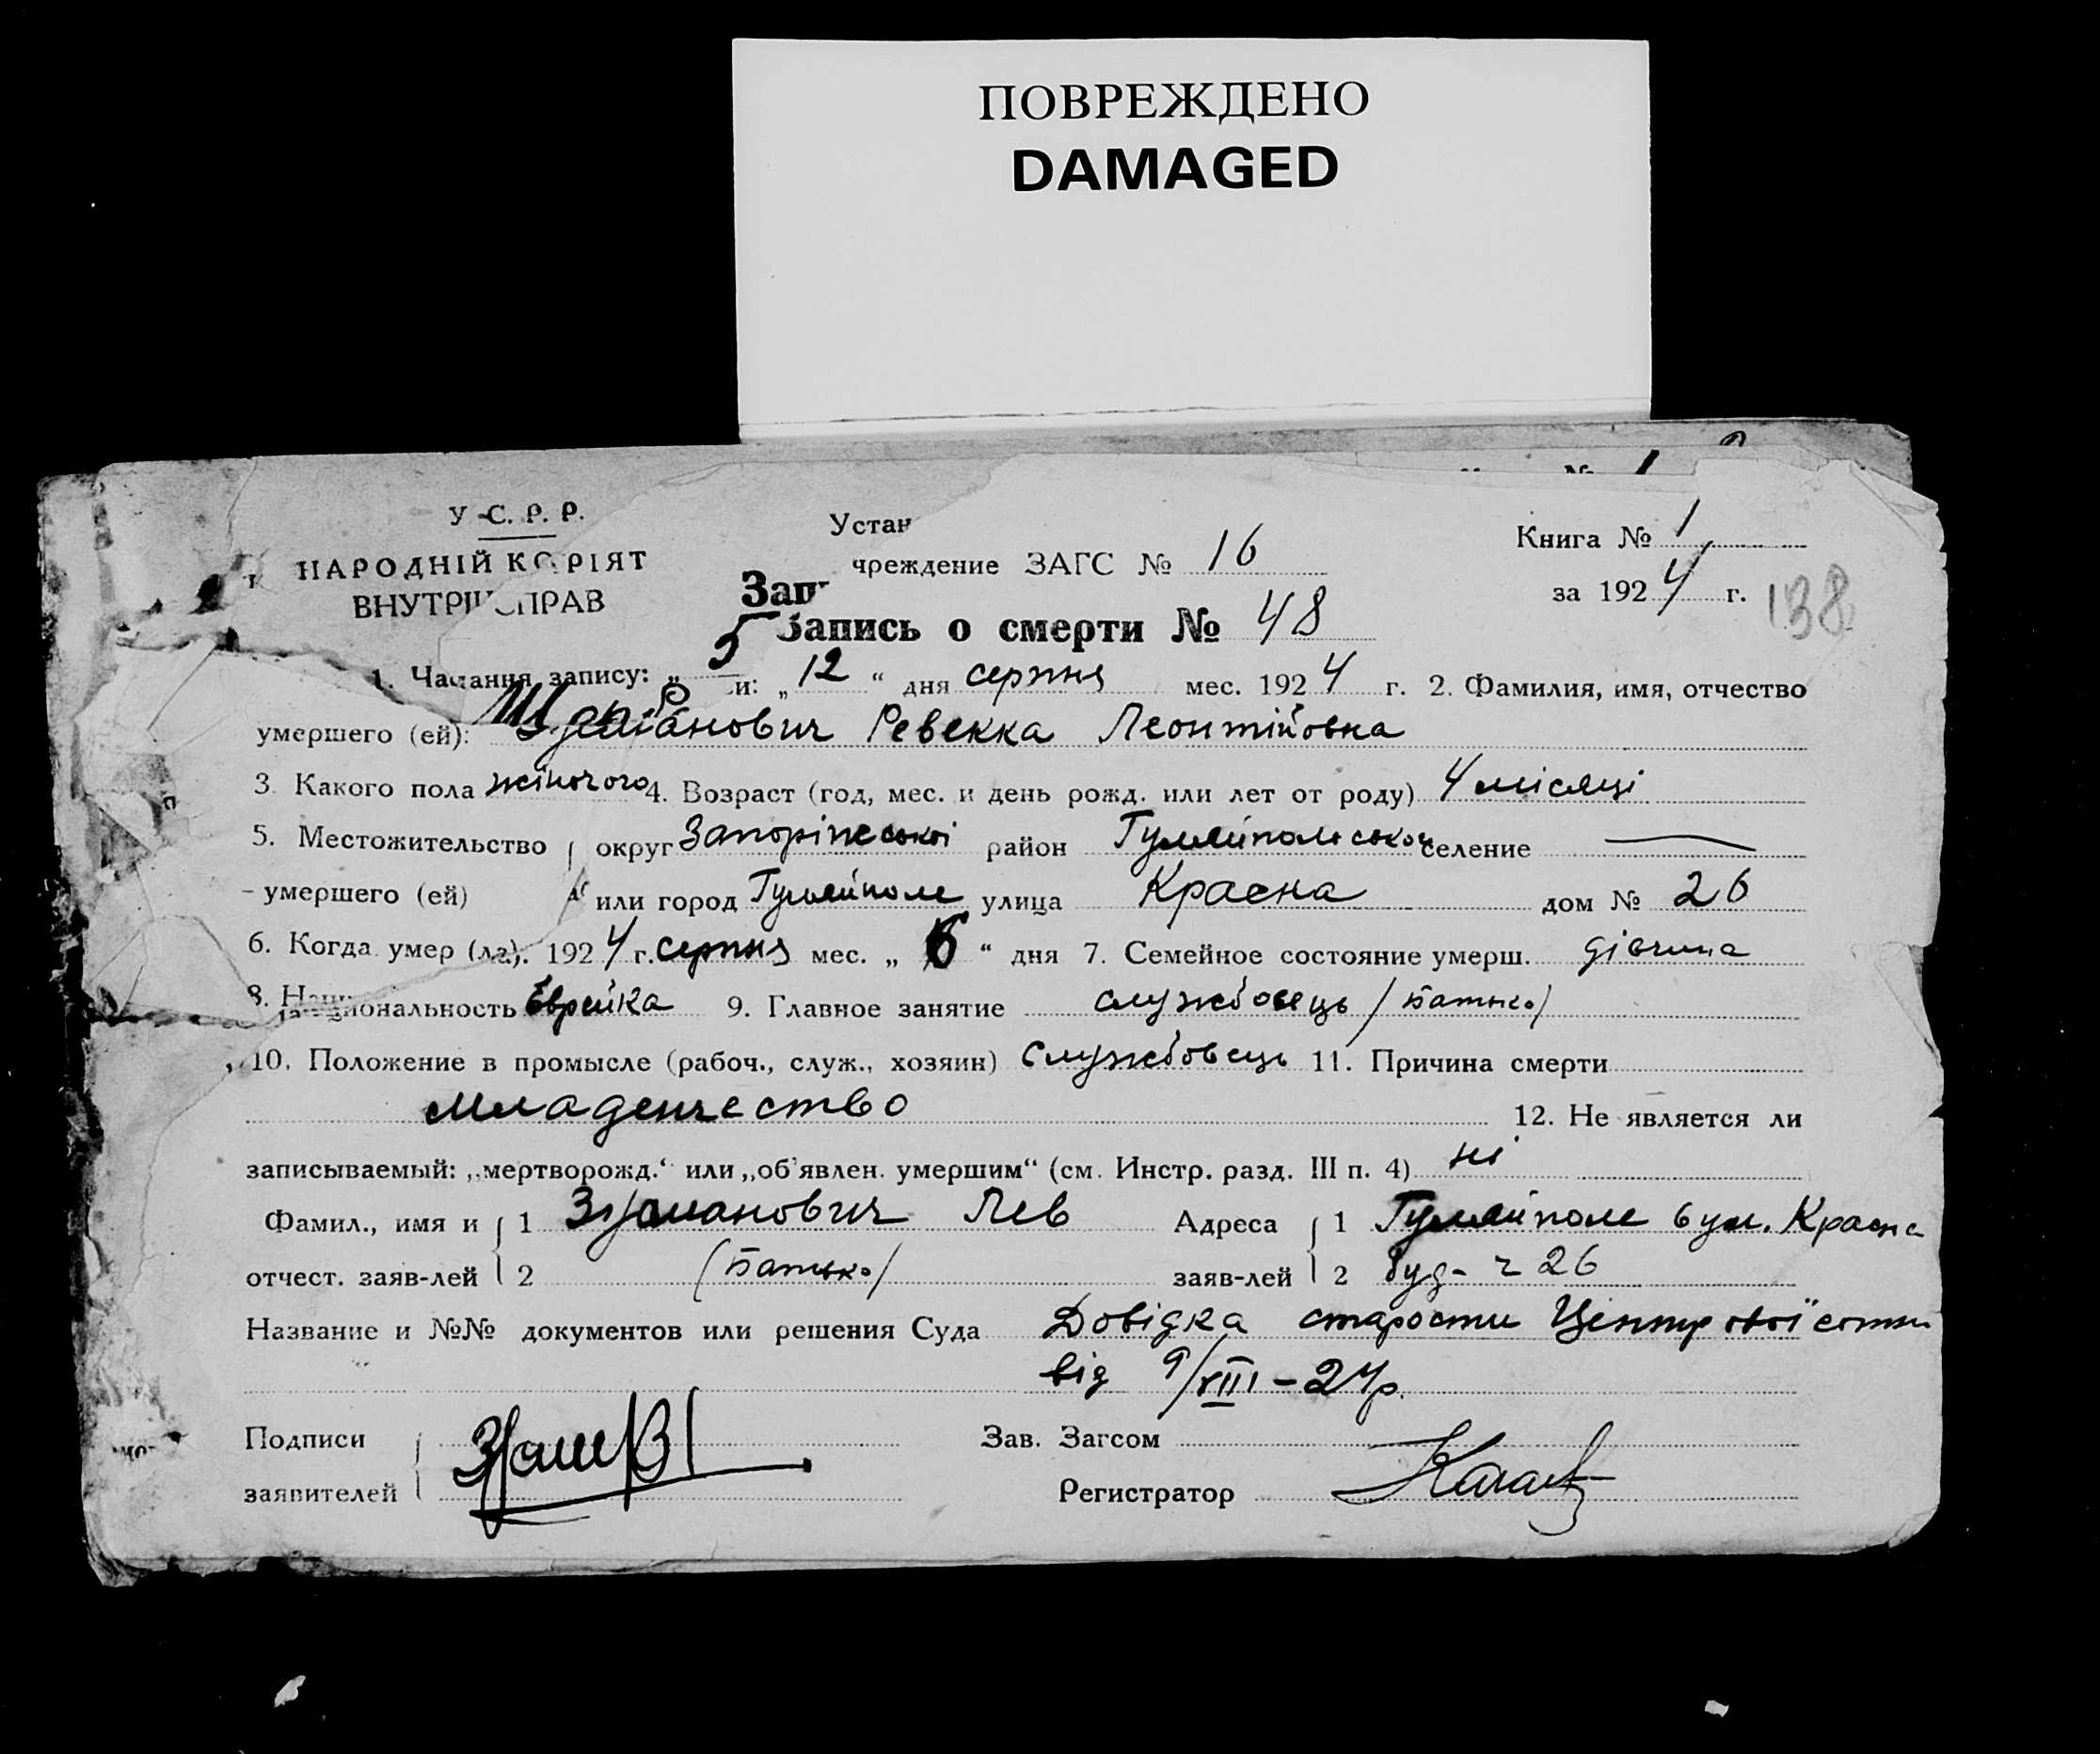 ПОВРЕЖДЕНО
DAMAGED
№ 1
У.С.Р.Р.
НАРОДНІЙ КО РІЯТ
ВНУТРІШ СПРАВ
Устан
чреждение ЗАГС № 16
Книга № 1
за 1924 г.
138
Зап
5 Запись о смерти № 48
1. Ча ання запису: „ и: „12“ дня серпня мес. 1924 г. 2. Фамилия, имя, отчество
умершего (ей): Ревекка Леонтійовна
3. Какого пола жіночого 4. Возраст (год, мес. и день рожд. или лет от роду) 4 місяці
5. Местожительство округ Запоріжської район Гуляйпольської селение —
умершего (ей) или город Гуляйполе улица Красна дом № 26
6. Когда умер (ла). 1924 г. серпня мес. „6“ дня 7. Семейное состояние умерш. дівчина
8. Национальность Еврейка 9. Главное занятие службовець /батько/
10. Положение в промысле (рабоч., служ., хозяин) Службовець 11. Причина смерти
младенчество 12. Не является ли
записываемый: „мертворожд.“ или „об'явлен. умершим“ (см. Инстр. разд. III п. 4) ні
Фамил., имя и 1 Лев Адреса 1 Гуляйполе вул. Красна
отчест. заяв-лей 2 /батько/ заяв-лей 2 буд- ч 26
Название и №№ документов или решения Суда Довідка старости Центрової сотни
від 9/VIII-24р.
Подписи Зав. Загсом
заявителей Регистратор